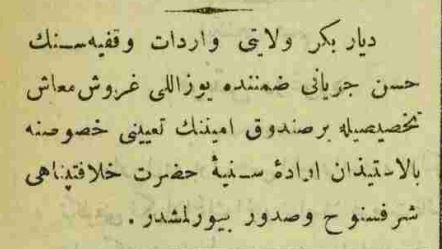 ديار بكر ولايتى واردات وقفيه‌سنك
حسن جريانى ضمننده يوز اللى غروش معاش
تخصيصيله بر صندوق امينك تعيينى خصوصنه
بالاستيذان ارادۀ سنيۀ حضرت خلافتپناهى
شرفسنوح وصدور بيورلمشدر .